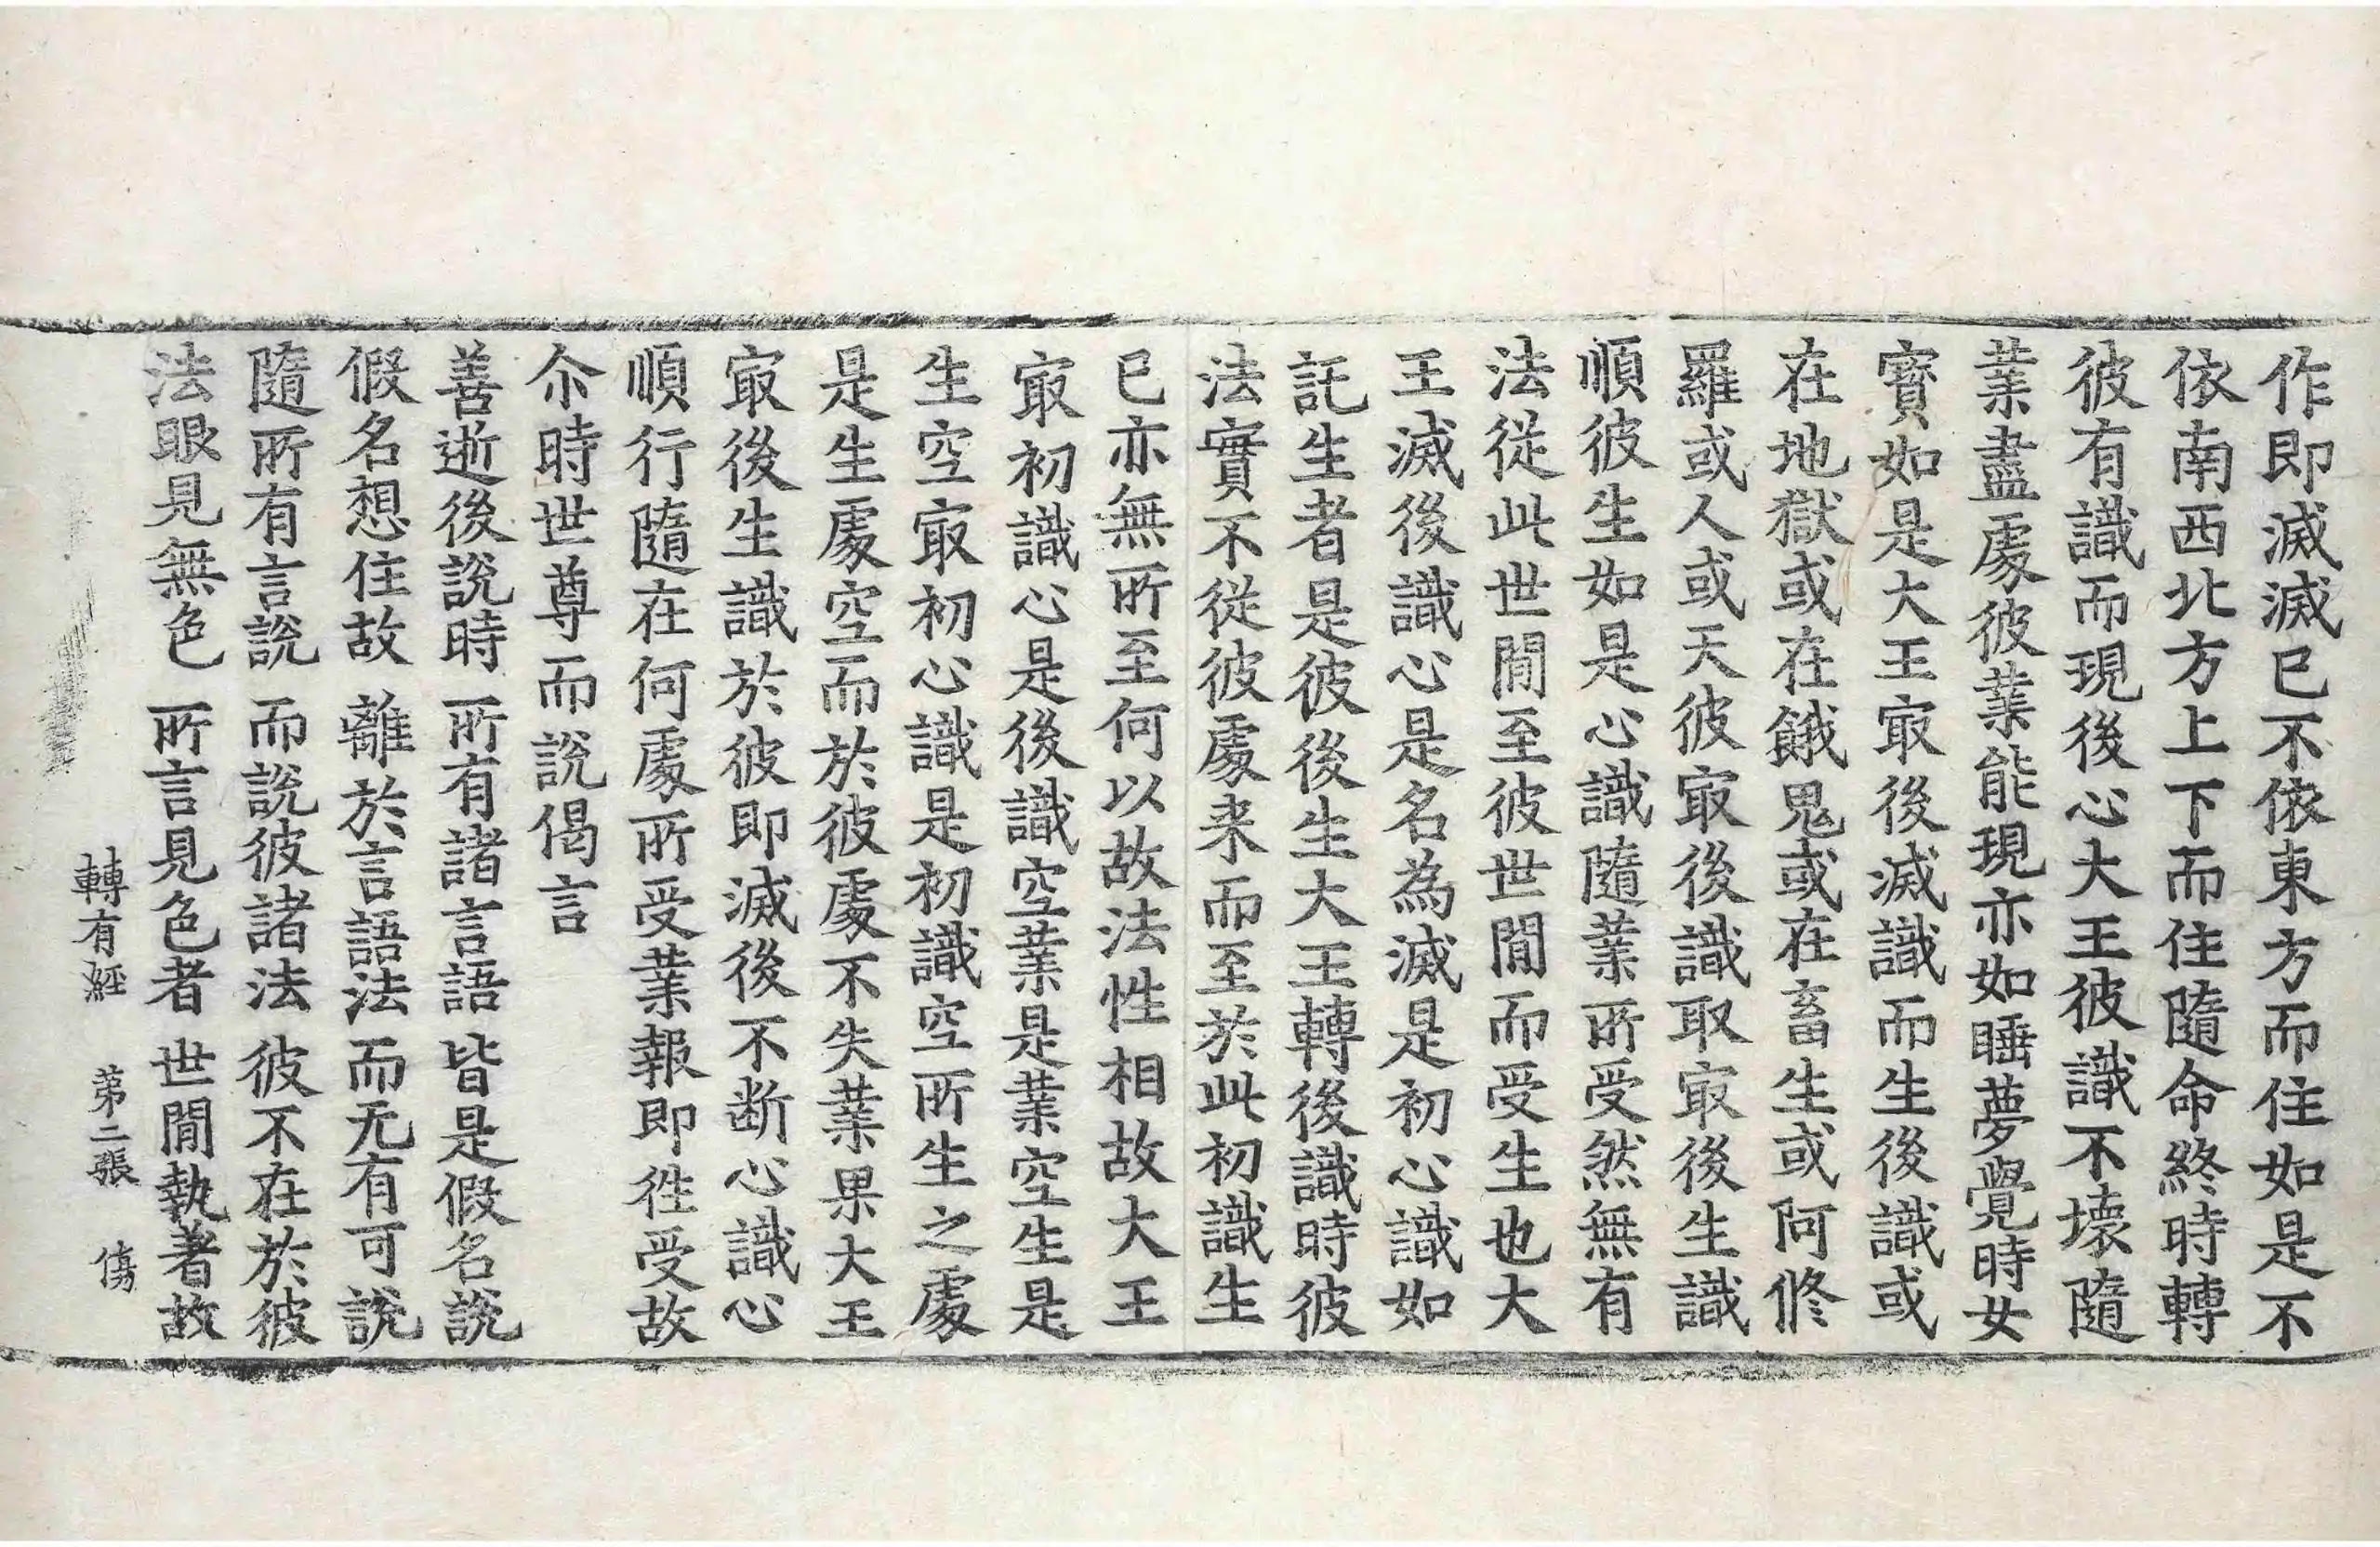 作即滅滅已不依東方而住如是不
依南西北方上下而住隨命終時轉
彼有識而現後心大王彼識不壞隨
業盡處彼業能現亦如睡夢覺時女
寶如是大王冣後滅識而生後識或
在地獄或在餓鬼或在畜生或阿修
羅或人或天彼冣後識取冣後生識
順彼生如是心識隨業所受然無有
法從此世閒至彼世閒而受生也大
王滅後識心是名為滅是初心識如
託生者是彼後生大王轉後識時彼
法實不從彼處来而至於此初識生
已亦無所至何以故法性相故大王
冣初識心是後識空業是業空生是
生空冣初心識是初識空所生之處
是生處空而於彼處不失業果大王
冣後生識於彼即滅後不断心識心
順行隨在何處所受業報即徃受故
尒時世尊而說偈言
善逝後說時 所有諸言語 皆是假名說
假名想住故 離於言語法 而无有可說
隨所有言說 而說彼諸法 彼不在於彼
法眼見無色 所言見色者 世閒執著故
轉有經 第二張 傷